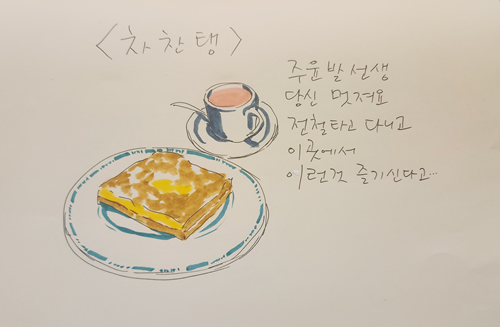 <차찬탱>
주윤발선생
당신 멋져요
전철타고 다니고
이곳에서
이런것 즐기신다고...